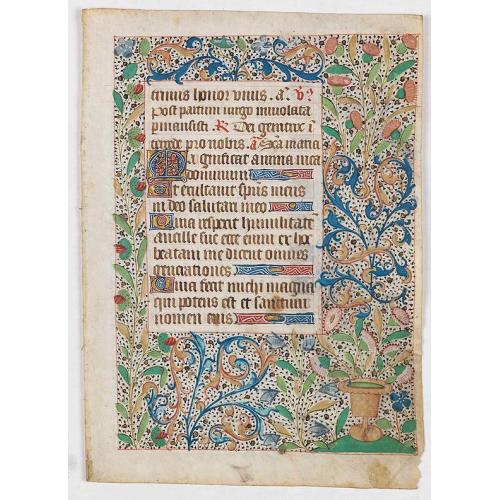 ternus honor unius. a. V.
Post partum virgo inviolata
permansisti. R. Dei genitrix i
tercede pro nobis. a. Sca maria
Magnificat anima mea
dominum
Et exultavit spiritus meus
in deo salutari meo
Quia respexit humilitate
ancille sue ecce enim ex hoc
beatam me dicent omnes
generationes
Quia fecit michi magna
qui potens est et sanctum
nomen eius